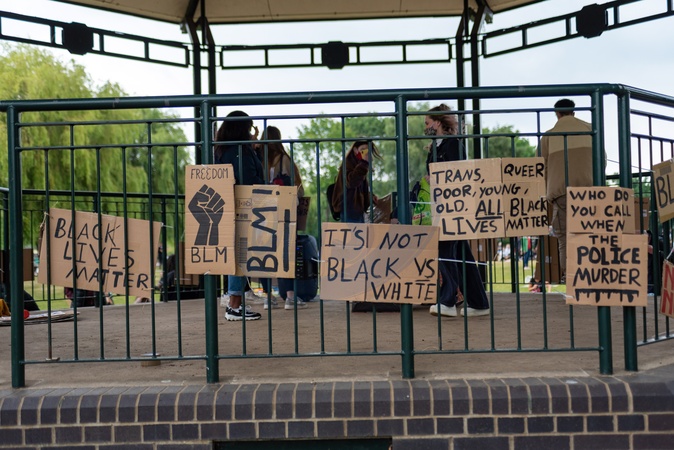 BLACK
LIVES
MATTER
FREEDOM
BLM
BLM!
IT'S NOT
BLACK VS
WHITE
TRANS, QUEER
POOR, YOUNG,
OLD, ALL BLACK
LIVES MATTER
WHO DO
YOU CALL
WHEN
THE
POLICE
MURDER